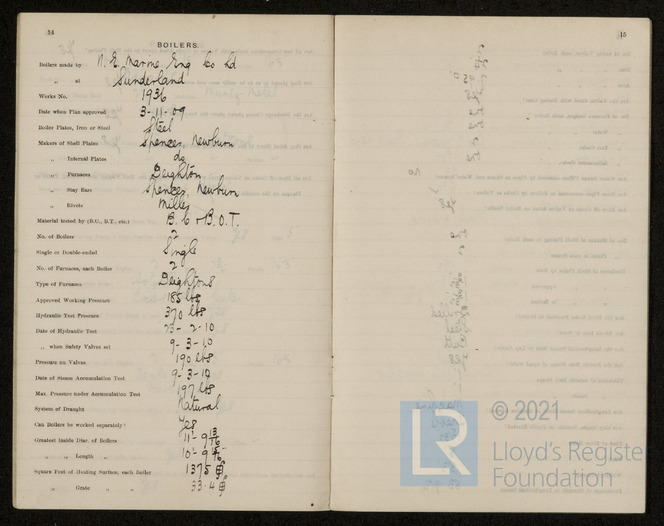 14
BOILERS.
Boilers made by N. E. Marine Eng Co Ld
„ at Sunderland
Works No. 1936
Date when Plan approved 3-11-09
Boiler Plates, Iron or Steel Steel
Makers of Shell Plates Spencer, Newburn
„ Internal Plates do
„ Furnaces Deighton
„ Stay Bars Spencer, Newburn
„ Rivets Miller
Material tested by (B.C., B.T., etc.) B. C & B.O.T.
No. of Boilers 2
Single or Double-ended Single
No. of Furnaces, each Boiler 2
Type of Furnaces Deightons
Approved Working Pressure 185 lbs
Hydraulic Test Pressure 370 lbs
Date of Hydraulic Test 23-2-10
„ when Safety Valves set 9-3-10
Pressure on Valves 190 lbs
Date of Steam Accumulation Test 9-3-10
Max. Pressure under Accumulation Test 197 lbs
System of Draught Natural
Can Boilers be worked separately? Yes
Greatest Inside Diar. of Boilers 11'-9 13/16
„ „ Length „ 10'-9
Square Feet of Heating Surface, each Boiler 1375
„ Grate „ „ 33.4
15
LR
© 2021
Lloyd's Register
Foundation